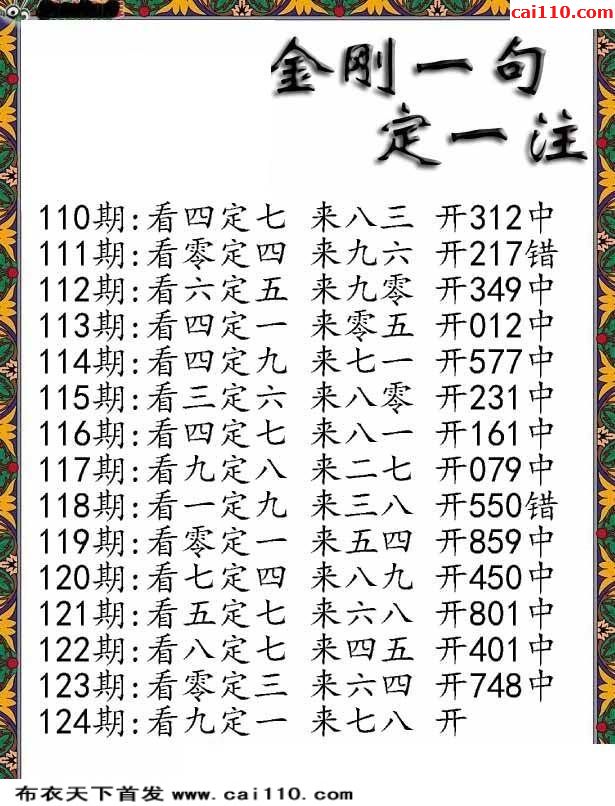 cai110.com
金刚一句
定一注
110期:看四定七 来八三 开312中
111期:看零定四 来九六 开217错
112期:看六定五 来九零 开349中
113期:看四定一 来零五 开012中
114期:看四定九 来七一 开577中
115期:看三定六 来八零 开231中
116期:看四定七 来八一 开161中
117期:看九定八 来二七 开079中
118期:看一定九 来三八 开550错
119期:看零定一 来五四 开859中
120期:看七定四 来八九 开450中
121期:看五定七 来六八 开801中
122期:看八定七 来四五 开401中
123期:看零定三 来六四 开748中
124期:看九定一 来七八 开
布衣天下首发 www.cai110.com